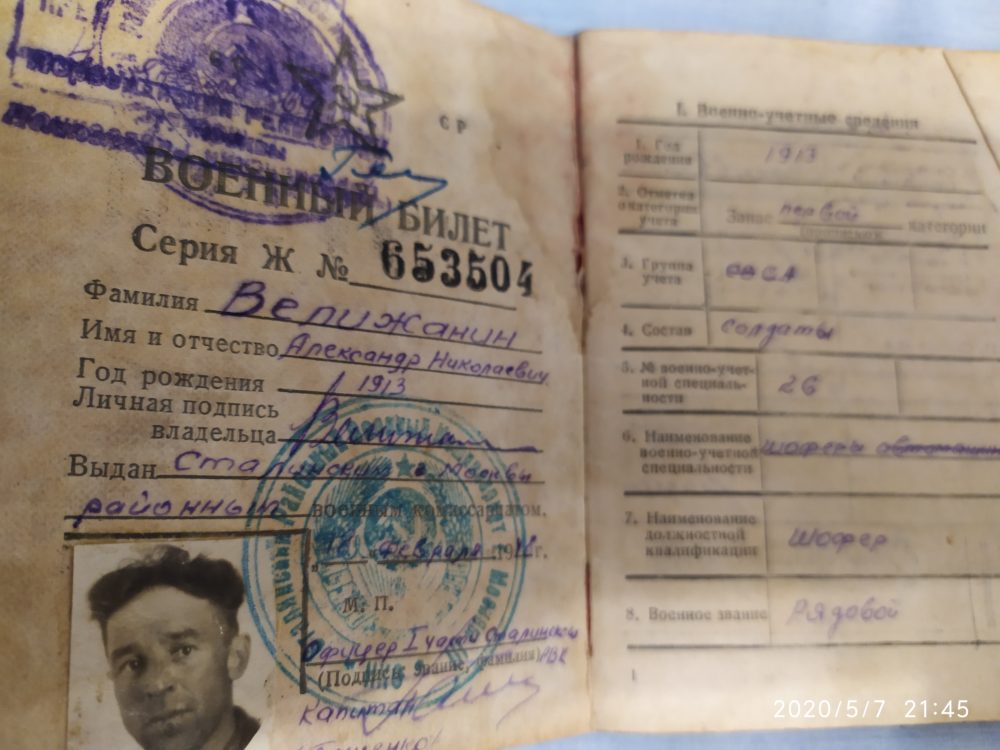 СР
ВОЕННЫЙ БИЛЕТ
Серия Ж № 653504
Фамилия Верижанин
Имя и отчество Александр Николаевич
Год рождения 1913
Личная подпись
владельца
Выдан Сталинским г. Москвы
районным военным комиссариатом.
Февраля
М. П.
Офицер I части Сталинского
(Подпись, звание, фамилия) РВК
Капитан
I. Военно-учетные сведения
1. Год
рождения 1913
2. Отметка
о категории
учета Запас первой категории
3. Группа
учета СА
4. Состав Солдаты
5. № военно-учет-
ной специаль-
ности 26
6. Наименование
военно-учетной
специальности шоферы
7. Наименование
должностной
квалификации Шофер
8. Военное звание Рядовой
1
2020/5/7 21:45